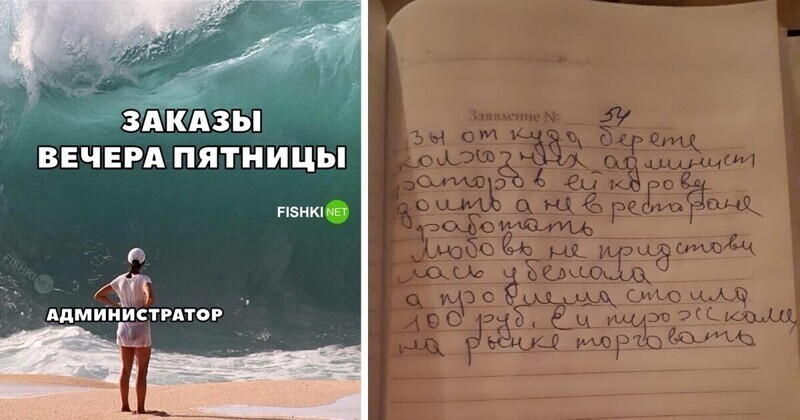 ЗАКАЗЫ
ВЕЧЕРА ПЯТНИЦЫ
FISHKI NET
FISHKI
АДМИНИСТРАТОР
Заявление № 54
вы от куда берете
колхозных админист
раторов ей корову
доить а не в рестаране
работать
любовь не придстови
лась убежала
а проблема стоила
100 руб. Ей пирожками
на рынке торговать